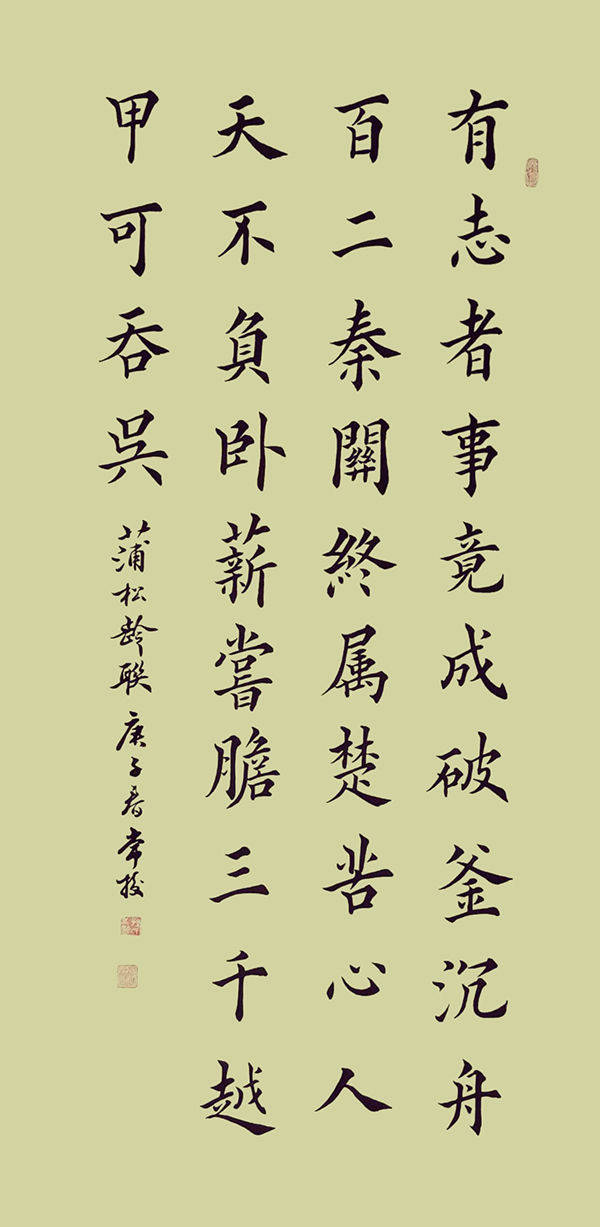 有志者事竟成破釜沉舟
百二秦關終属楚苦心人
天不負卧薪嘗膽三千越
甲可吞呉
蒲松龄联庚子春常校